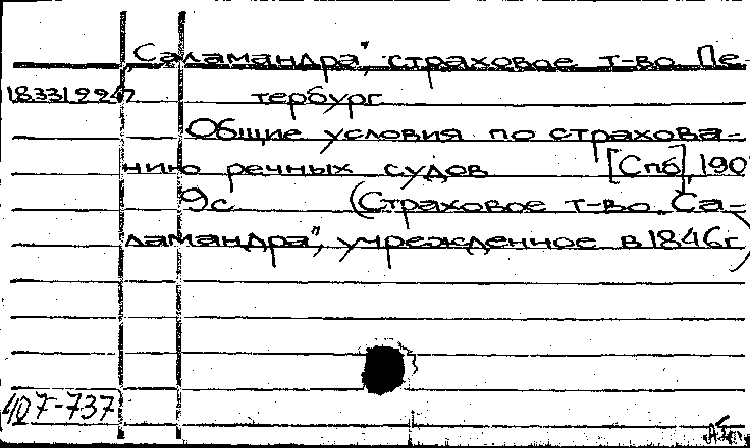 „Саламандра", страховое т-во. Пе-
тербург.
Общие условия по страхова-
нию речных судов [Спб], 190
9с. (Страховое т-во „Са-
ламандра", учрежденное в 1846 г.)
407-737